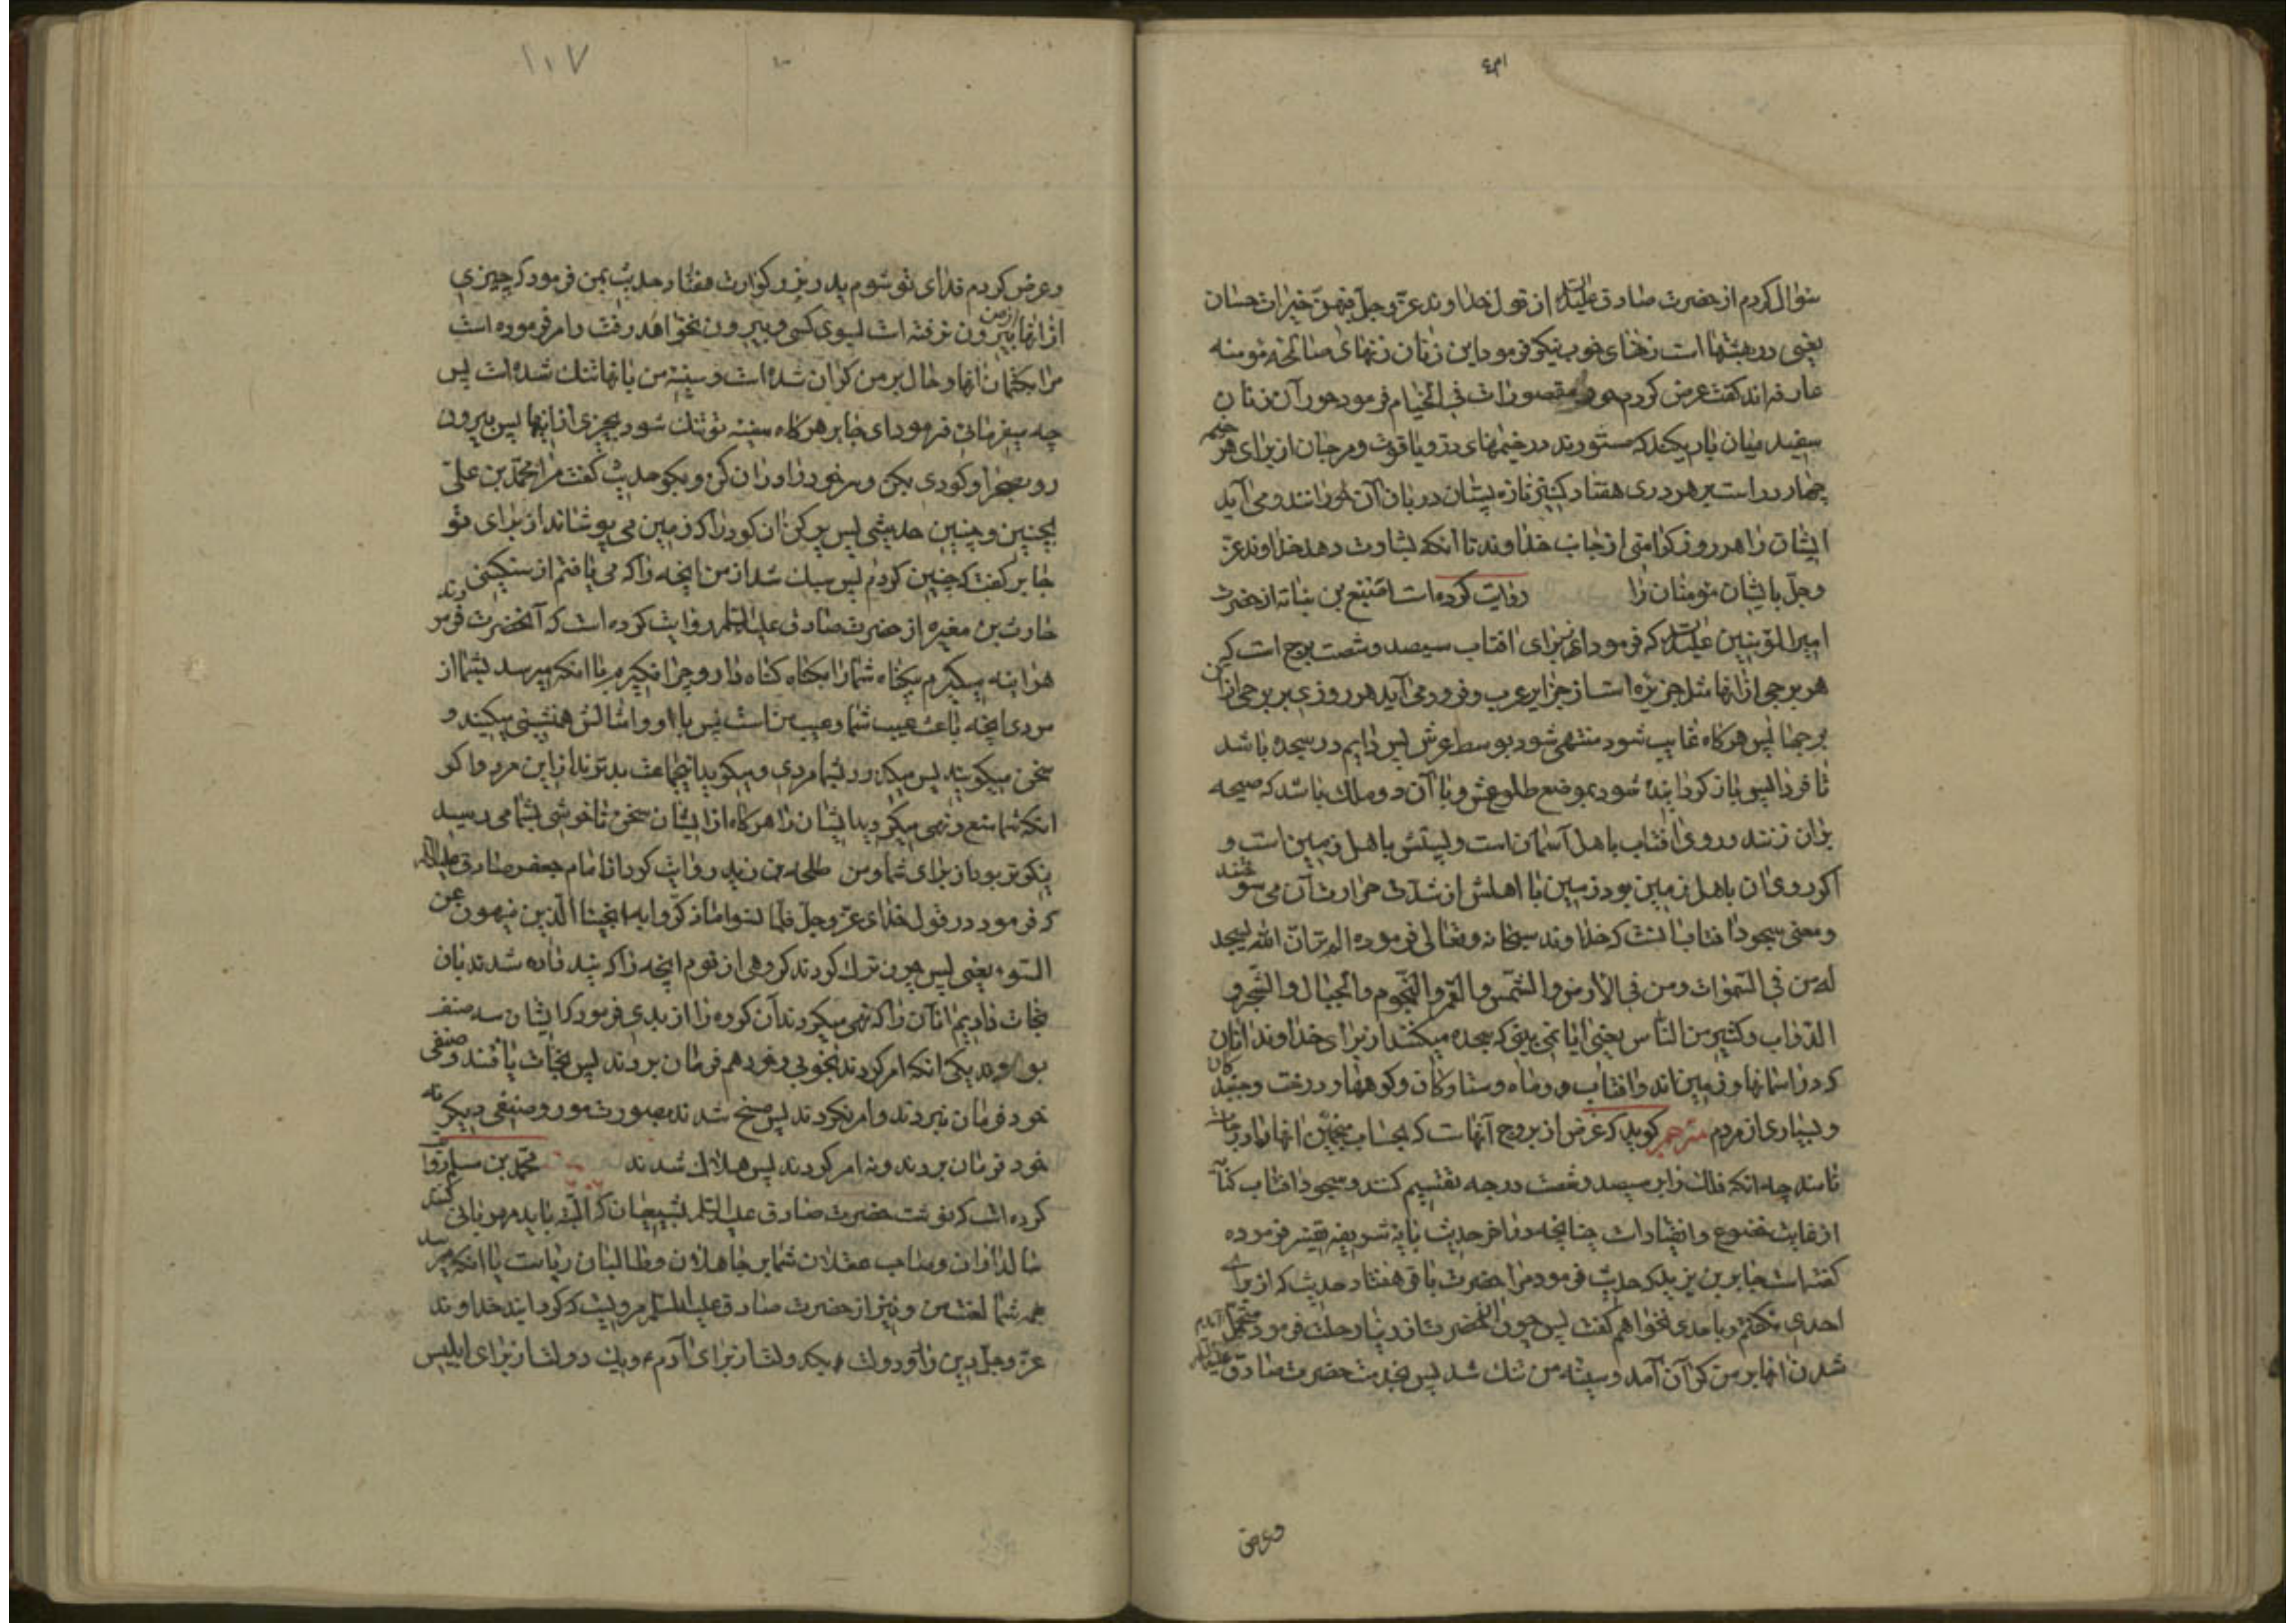 سئوال کردم از حضرت صادق علیه السلام از قول خداوند عز و جل فیهن خیرات حسان
یعنی در بهشتها است زنهای خوب نیکو فرمود این زنان زنهای صالحه مؤمنه
عارفه اند گفت عرض کردم حور مقصورات فی الخیام فرمود حور آن زنان
سفید میان باریکند که مستورند در خیمهای در و یاقوت و مرجان از برای هر خیمه
چهار در است بر هر دری هفتاد کنیز تازه پستان دربان آن حورانند و می آید
ایشان را هر روز کرامتی از جانب خداوند تا آنکه بشارت دهد خداوند عز
و جل بایشان مؤمنان را روایت کرده است اصبغ بن نباته از حضرت
امیر المؤمنین علیه السلام که فرمود از برای افتاب سیصد و شصت برج است که
هر برجی از انها مثل جزیره است از جزایر عرب و فرود می آید هر روزی بر برجی از آن
برجها پس هرگاه غایب شود منتهی شود بوسط عرش پس دایم در سجده باشد
تا فردا پس باز گردانیده شود بموضع طلوعش و با آن دو ملک باشد که صیحه
بزان زنند و روی افتاب باهل آسمان است و پشتش باهل زمین است و
اگر روی ان باهل زمین بود زمین با اهلش از شدت حرارت آن می سوختند
و معنی سجود افتاب انست که خداوند سبحانه و تعالی فرموده الم تر ان الله یسجد
له من فی السموات و من فی الارض و الشمس و القمر و النجوم و الجبال و الشجر و
الدواب و کثیر من الناس یعنی ایا نمی بینی که سجده میکنند از برای خداوند انان
که در اسمانها و زمین اند و افتاب و ماه و ستاره کان و کوهها و درخت و جنبندکان
و بسیاری از مردم مترجم کوید که غرض از بروج آنهاست که بحساب منجمین انها را درجات
نامند چه انکه فلک را بر سیصد و شصت درجه تقسیم کنند و سجود افتاب کنایه
از غایت خضوع و انقیاد است چنانچه در اخر حدیث بآیه شریفه تفسیر فرموده
گفته است جابر بن یزید که حدیث فرمود مرا حضرت باقر هفتاد حدیث که از برای
احدی نگفتم و باحدی نخواهم گفت پس چون آنحضرت از دنیا رحلت فرمود متحمل
شدن انها بر من گران آمد و سینه من تنگ شد پس بخدمت حضرت صادق علیه السلام آمدم
وعرض
۱۰۷
و عرض کردم فدای تو شوم پدر بزرگوارت هفتاد حدیث بمن فرمود که چیزی
از انها از من بیرون نرفته است بسوی کسی و بیرون نخواهد رفت و امر فرموده است
مرا بکتمان انها و حال بر من گران شده است و سینه من بانها تنگ شده است پس
چه میفرمائی فرمود ای جابر هرگاه سینه تو تنگ شود بچیزی از انها پس بیرون
رو بصحرا و گودی بکن و سر خود را در ان کن و بگو حدیث گفت مرا محمد بن علی
بچنین و چنین حدیثی پس پر کن ان گود را که زمین می پوشاند از برای تو
جابر گفت که چنین کردم پس سبک شد از من انچه را که می یافتم از سنگینی
حارث بن مغیره از حضرت صادق علیه السلام روایت کرده است که آنحضرت فرمودند
هراینه میگیرم بیگناه شما را بگناه گناه دار و چرا نگیرم با انکه میرسد بشما از
مردی انچه باعث عیب شما و عیب من است پس با او و امثالش همنشینی میکنید و
سخن میگویید پس میگذرد بشما مردی و میگوید اینجماعت بدترند از این مرد و اگر
انکه شما منع و نهی میکردید ایشان را هرگاه از ایشان سخن ناخوشی بشما می رسید
نیکوتر بود از برای شما و من طلحه بن زید روایت کرد از امام جعفر صادق علیه السلام
که فرمود در قول خدای عز و جل فلما نسوا ما ذکروا به انجینا الذین ینهون عن
السوء یعنی پس چون ترک کردند گروهی از قوم انچه را که پند داده شدند بان
نجات دادیم انان را که نهی میکردند آن گروه را از بدی فرمود که ایشان سه صنف
بودند یکی انکه امر کردند بخوبی و خود هم فرمان بردند پس نجات یافتند و صنفی
خود فرمان نبردند و امر نکردند پس مسخ شدند بصورت مور و صنفی دیگر نه
خود فرمان بردند و نه امر کردند پس هلاک شدند محمد بن مسلم روایت
کرده است که نوشت حضرت صادق علیه السلام بشیعیان که البته باید مهربانی کنند
سالداران و صاحب عقلان شما بر جاهلان و طالبان ریاست یا انکه میرسد
همه شما لعنت من و نیز از حضرت صادق علیه السلام مرویست که گردانید خداوند
عز و جل دین را دو دولت یکدولت از برای آدم و یک دولت از برای ابلیس